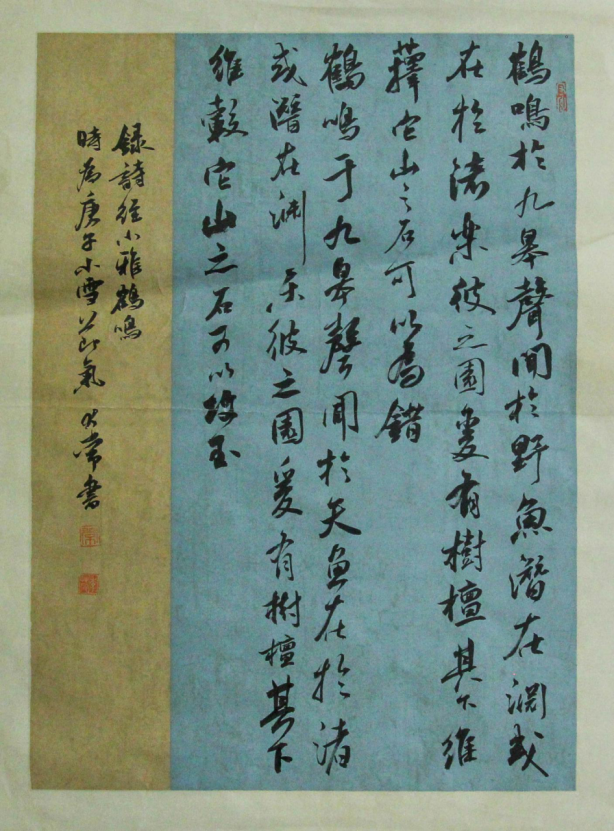 鶴鳴於九皋聲聞於野魚潛在淵或
在於渚樂彼之園爰有樹檀其下維
蘀它山之石可以為錯
鶴鳴于九皋聲聞於天魚在於渚
或潛在淵樂彼之園爰有樹檀其下
維榖它山之石可以攻玉
錄詩經小雅鶴鳴
時為庚子小雪節氣 大常書